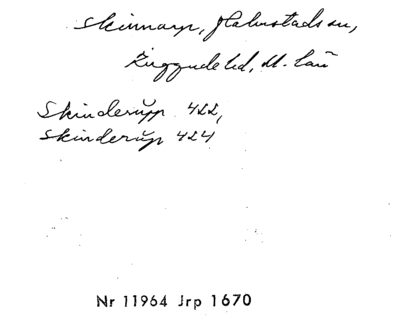 Skinnarp, Halmstads sn,
Luggude hd, M. län
Skinderŭpp 422,
Skinderŭp 424
Nr 11964 Jrp 1670